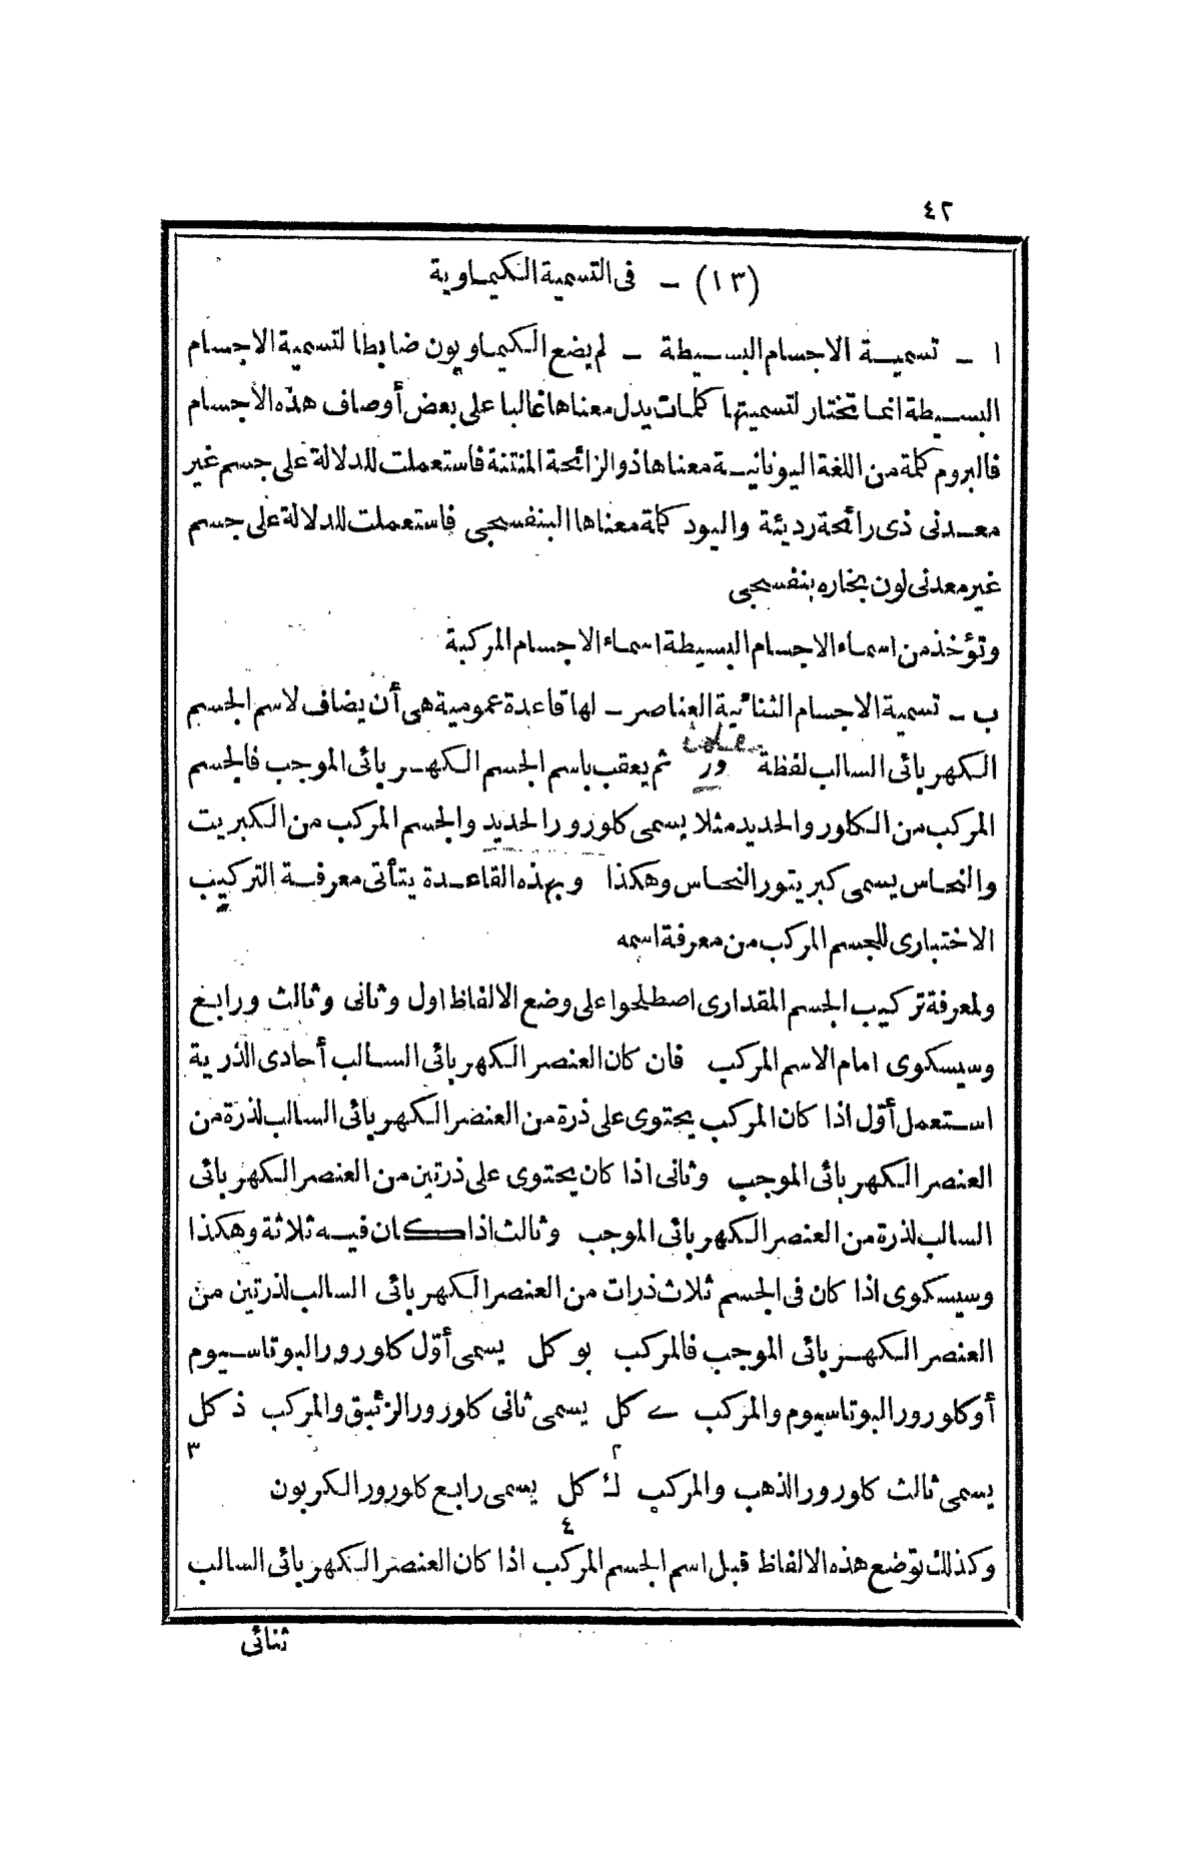 ٤٢
(١٣) – فى التسمية الكيماوية
ا – تسمية الاجسام البسيطة – لم يضع الكيماويون ضابطا لتسمية الاجسام
البسيطة انما تختار لتسميتها كلمات يدل معناها غالبا على بعض أوصاف هذه الاجسام
فالبروم كلمة من اللغة اليونانية معناها ذو الرائحة المنتنة فاستعملت للدلالة على جسم غير
معدنى ذى رائحة رديئة واليود كلمة معناها البنفسجى فاستعملت للدلالة على جسم
غير معدنى لون بخاره بنفسجى
وتؤخذ من اسماء الاجسام البسيطة اسماء الاجسام المركبة
ب – تسمية الاجسام الثنائية العناصر – لها قاعدة عمومية هى أن يضاف لاسم الجسم
الكهربائى السالب لفظة ور ثم يعقب باسم الجسم الكهربائى الموجب فالجسم
المركب من الكلور والحديد مثلا يسمى كلورور الحديد والجسم المركب من الكبريت
والنحاس يسمى كبريتور النحاس وهكذا وبهذه القاعدة يتأتى معرفة التركيب
الاختبارى للجسم المركب من معرفة اسمه
ولمعرفة تركيب الجسم المقدارى اصطلحوا على وضع الالفاظ اول وثانى وثالث ورابع
وسيسكوى امام الاسم المركب فان كان العنصر الكهربائى السالب أحادى الذرية
استعمل أوّل اذا كان المركب يحتوى على ذرة من العنصر الكهربائى السالب لذرة من
العنصر الكهربائى الموجب وثانى اذا كان يحتوى على ذرتين من العنصر الكهربائى
السالب لذرة من العنصر الكهربائى الموجب وثالث اذا كان فيه ثلاثة وهكذا
وسيسكوى اذا كان فى الجسم ثلاث ذرات من العنصر الكهربائى السالب لذرتين من
العنصر الكهربائى الموجب فالمركب بو كل يسمى أوّل كلورور البوتاسيوم
أو كلورور البوتاسيوم والمركب ے كل٢ يسمى ثانى كلورور الزئبق والمركب ذ كل٣
يسمى ثالث كلورور الذهب والمركب ك كل٤ يسمى رابع كلورور الكربون
وكذلك توضع هذه الالفاظ قبل اسم الجسم المركب اذا كان العنصر الكهربائى السالب
ثنائى